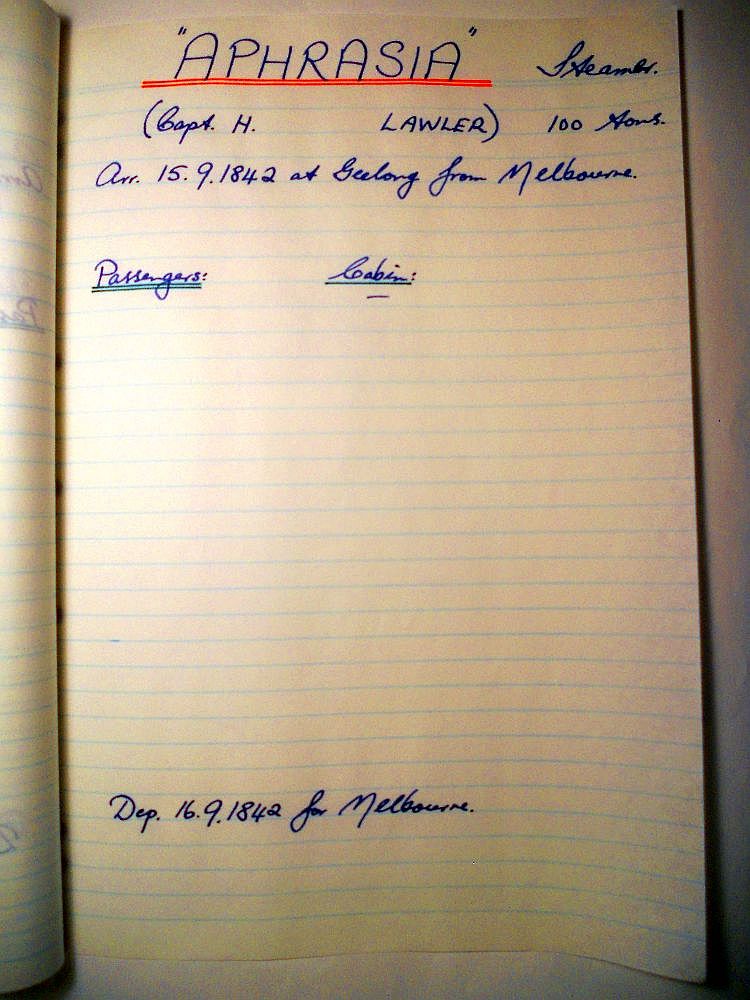 "APHRASIA" Steamer.
(Capt. H. LAWLER) 100 tons.
Arr. 15.9.1842 at Geelong from Melbourne.
Passengers: Cabin:
—
Dep. 16.9.1842 for Melbourne.